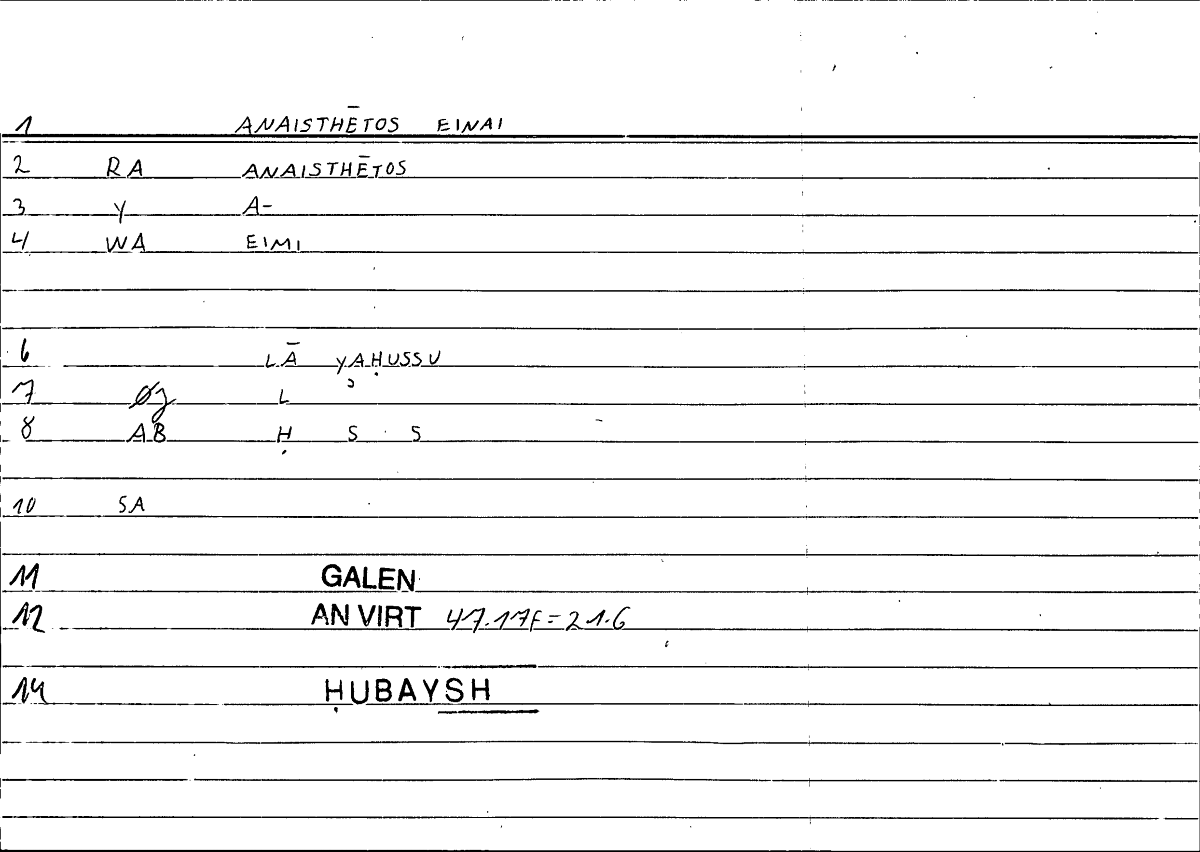 1 ANAISTHĒTOS EINAI
2 RA ANAISTHĒTOS
3 Y A-
4 WA EIMI
6 LĀ YAḤUSSU
7 L
8 AB Ḥ S S
10 SA
11 GALEN
12 AN VIRT 47.17f=21.6
14 ḤUBAYSH